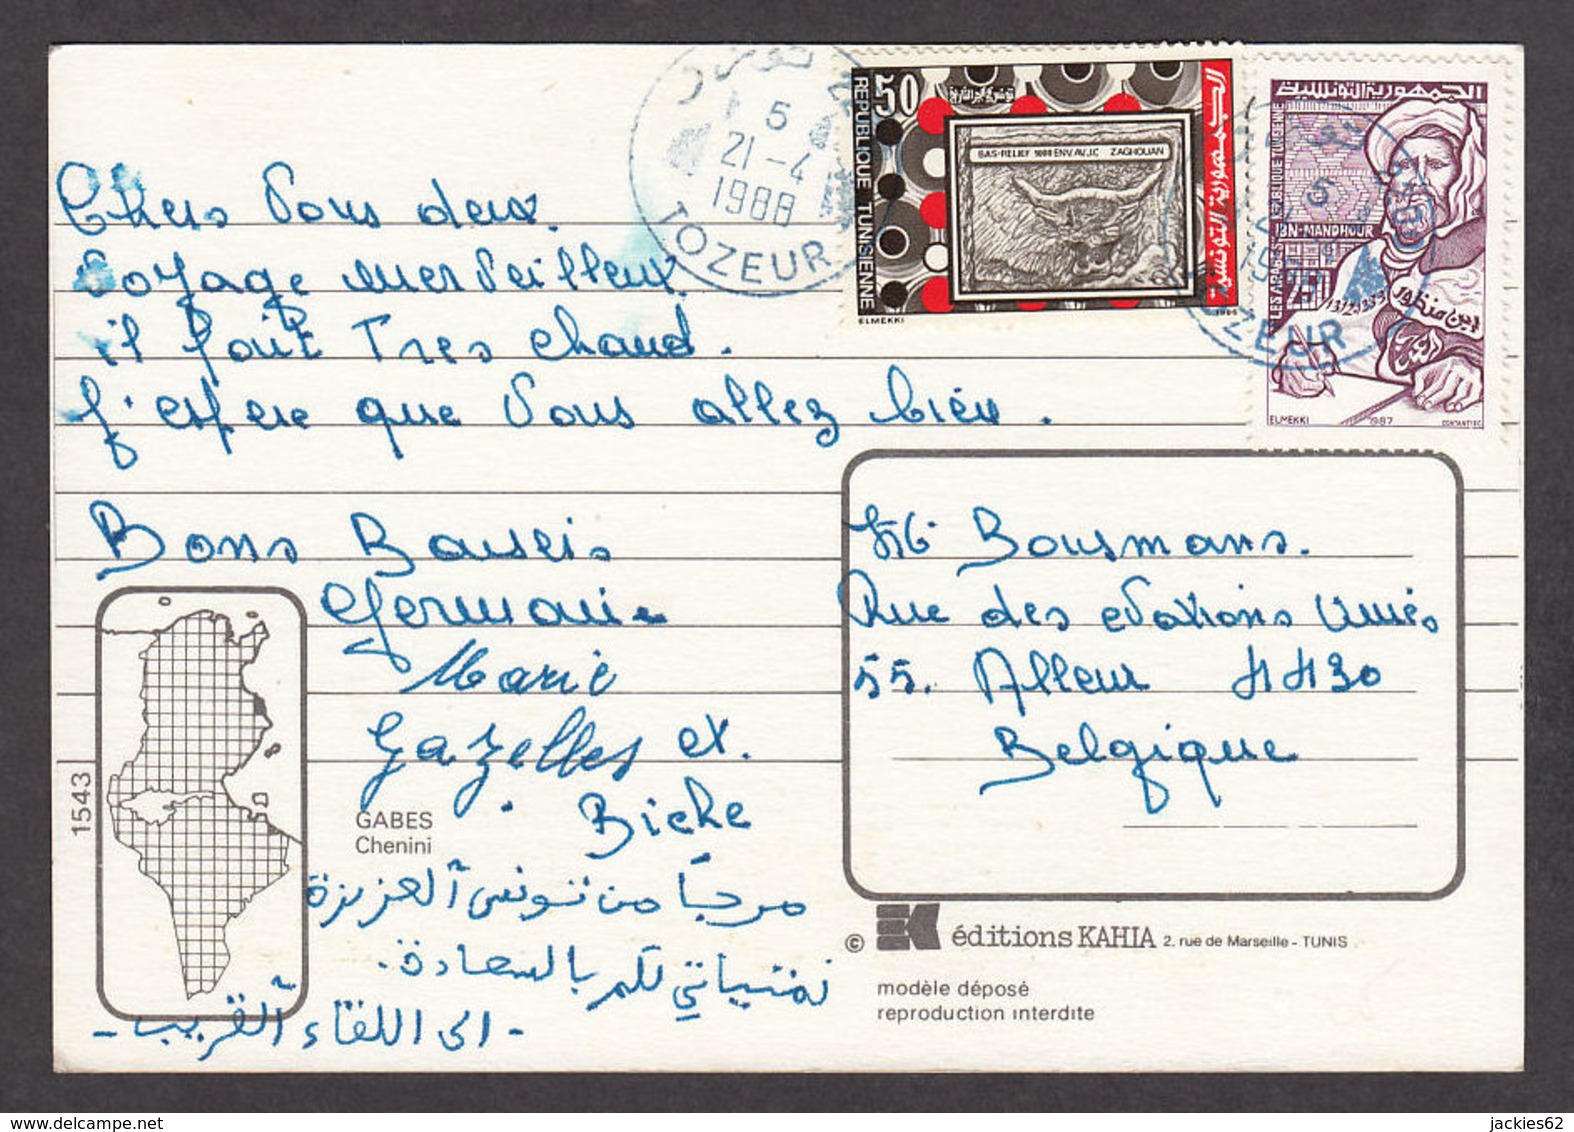 Chers Vous deux.
Voyage merveilleux.
il fait Très chaud.
J'espère que Vous allez bien.
Bons Baisers
Germaine
Marie
Gazelles et.
Biche
مرحبًا من تونس العزيزة
تمنياتي لكم بالسعادة.
- الى اللقاء القريب -
1543
GABES
Chenini
21-4
1988
TOZEUR
50
REPUBLIQUE TUNISIENNE
الجمهورية التونسية
BAS-RELIEF 1000 ENV.AV.J.C ZAGHOUAN
ELMEKKI
الجمهورية التونسية
REPUBLIQUE TUNISIENNE
IBN-MANDHOUR
ابن منظور
ELMEKKI
1987
ZEUR
Bousmans.
Rue des Nations Unies
55. Alleur 4430
Belgique
© éditions KAHIA 2, rue de Marseille - TUNIS
modèle déposé
reproduction interdite
delcampe.net
jackies62